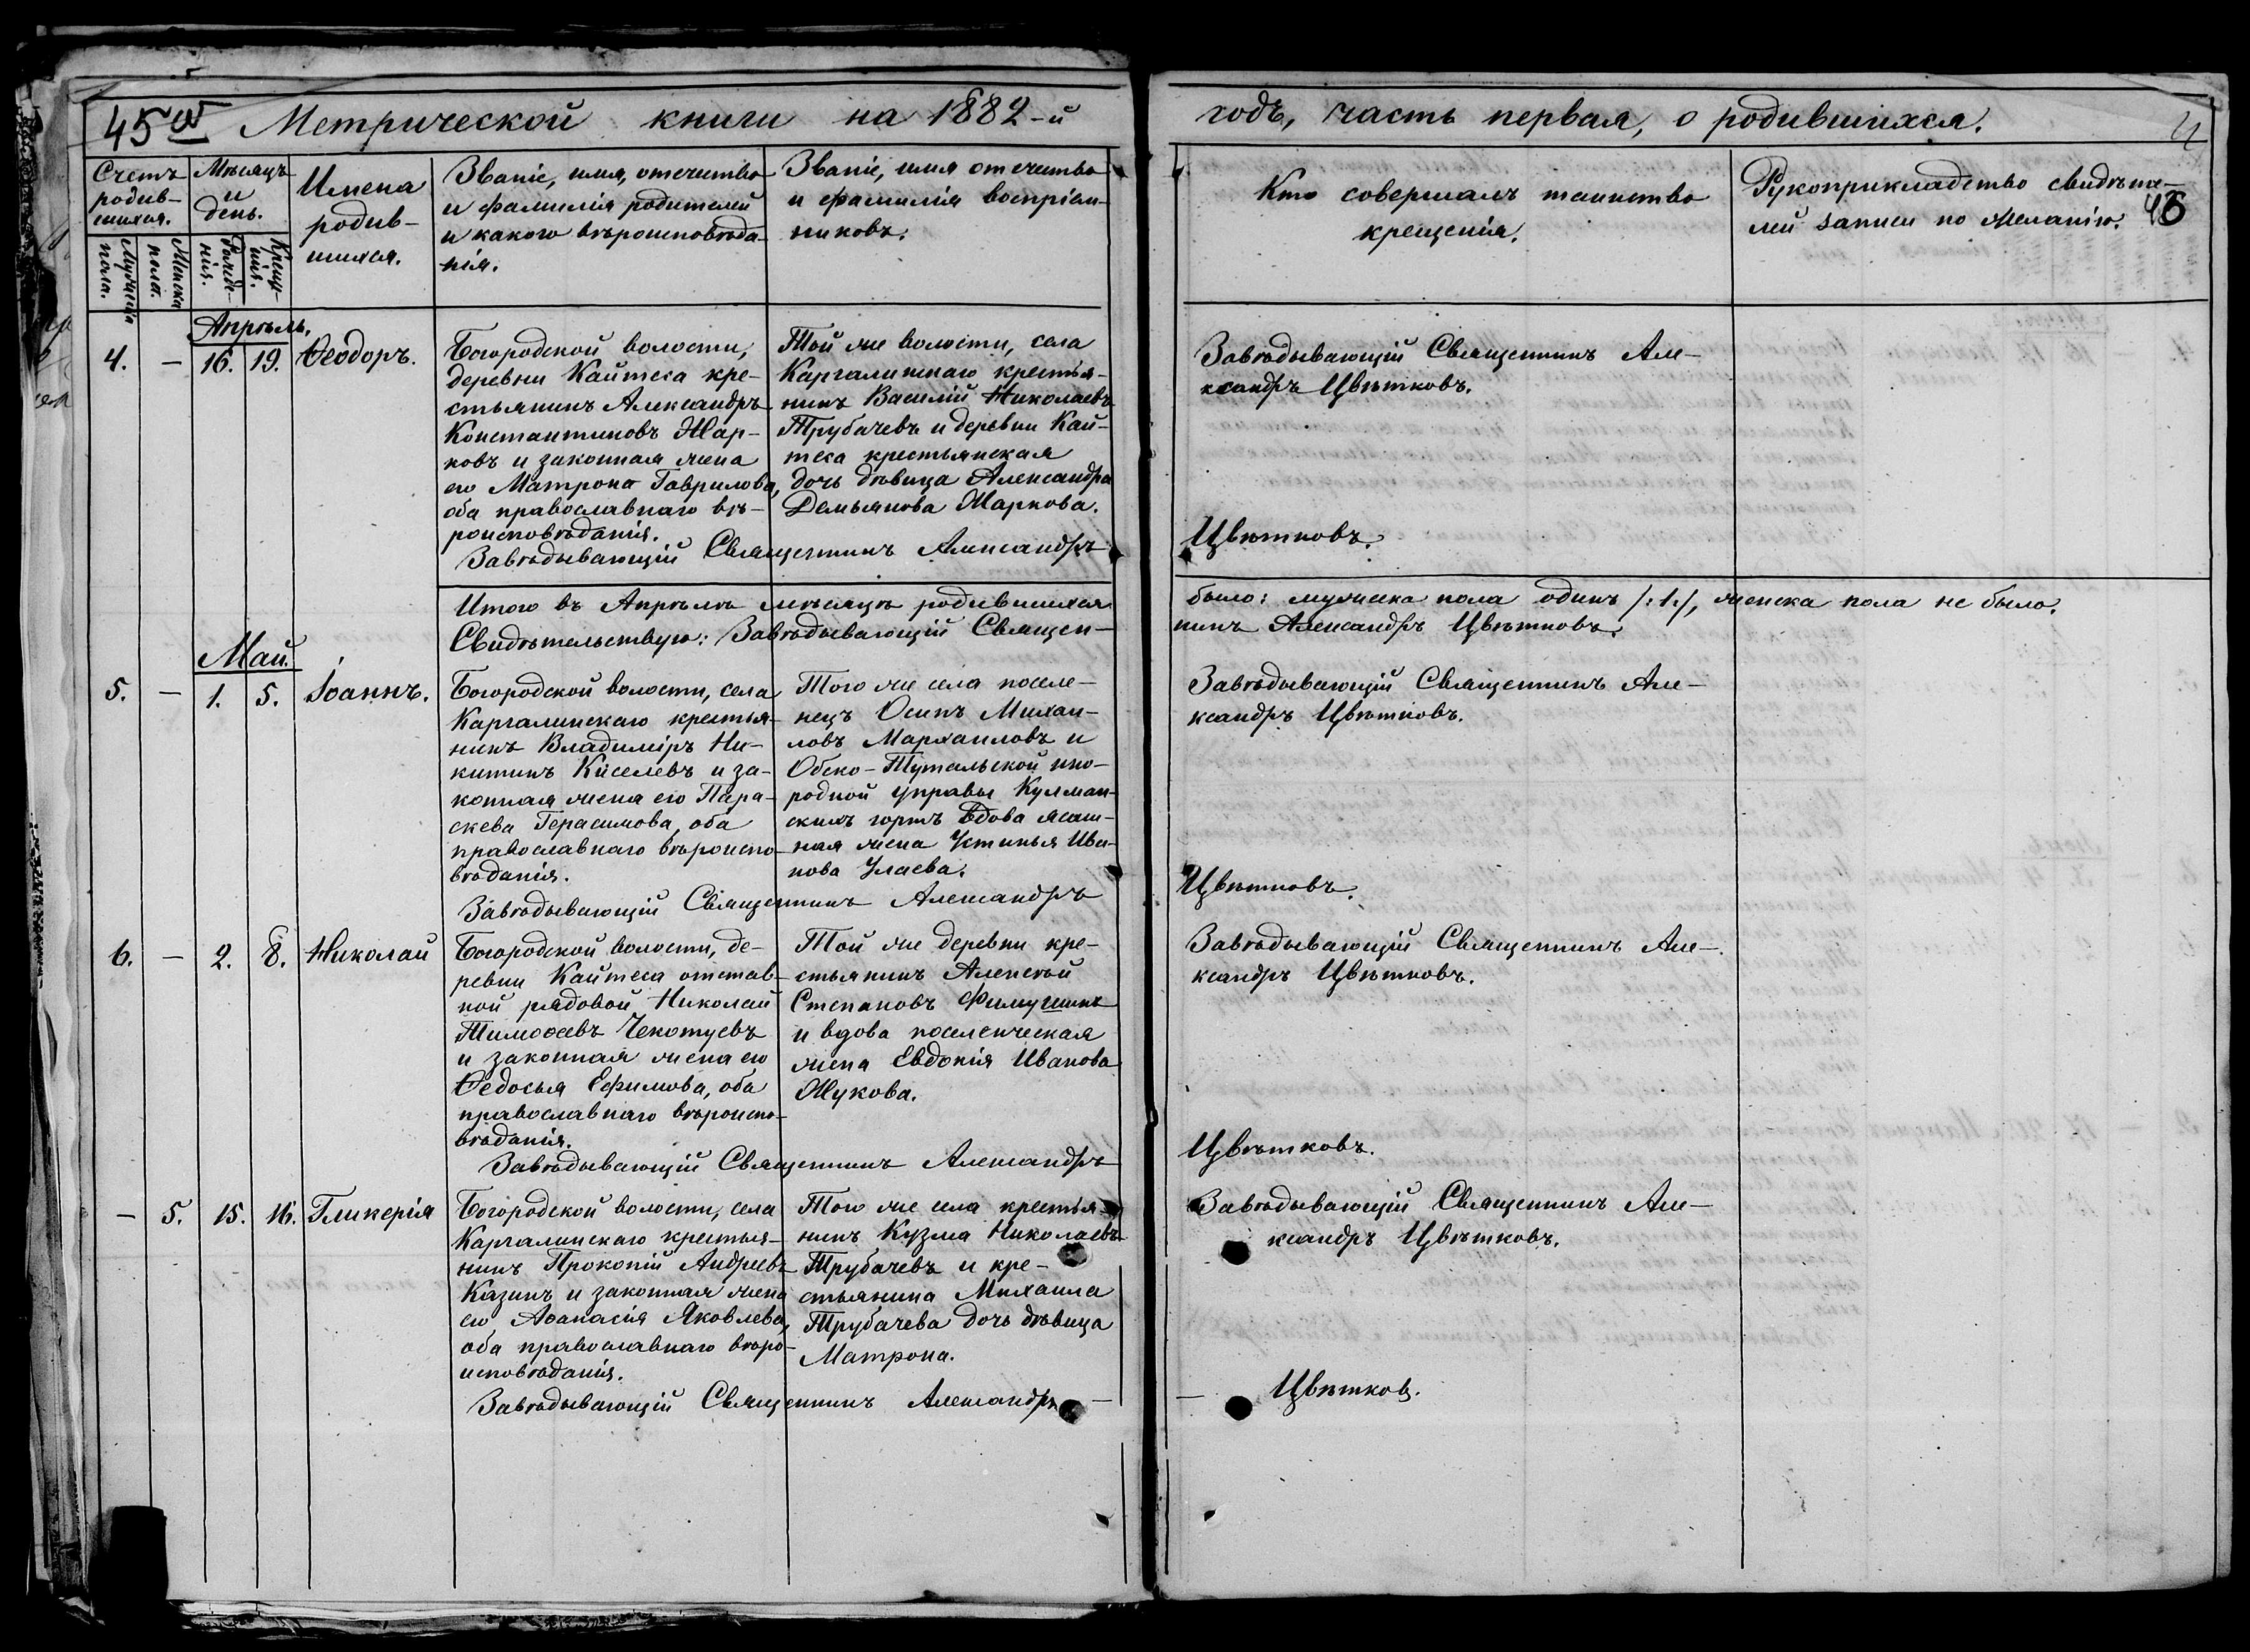 45 об Метрической книги на 1882-й годъ, часть первая, о родившихся.
46
Счетъ родив-
шихся.
Мужеска пола.
Женска пола.
Мѣсяцъ
и
день.
Рожде-
нія.
Креще-
нія.
Имена
родив-
шихся.
Званіе, имя, отечество
и фамилія родителей
и какого вѣроисповѣда-
нія.
Званіе, имя отечество
и фамилія воспріем-
никовъ.
Кто совершалъ таинство
крещенія.
Рукоприкладство свидѣте-
лей записи по желанію.
Апрѣль.
4. — 16. 19. Ѳеодоръ.
Богородской волости,
деревни Кайтеса кре-
стьянинъ Александръ
Константиновъ Жар-
ковъ и законная жена
его Матрона Гаврилова,
оба православнаго вѣ-
роисповѣданія.
Той же волости, села
Каргалинскаго крестья-
нинъ Василій Николаевъ
Трубачевъ и деревни Кай-
теса крестьянская
дочь дѣвица Александра
Демьянова Жаркова.
Завѣдывающій Священникъ Але-
ксандръ Цвѣтковъ.
Завѣдывающій Священникъ Александръ Цвѣтковъ.
Итого въ Апрѣлѣ мѣсяцѣ родившихся было: мужеска пола одинъ /:1:/, женска пола не было.
Свидѣтельствую: Завѣдывающій Священ-
никъ Александръ Цвѣтковъ.
Май.
5. — 1. 5. Іоаннъ.
Богородской волости, села
Каргалинскаго крестья-
нинъ Владиміръ Ни-
китинъ Киселевъ и за-
конная жена его Пара-
скева Герасимова, оба
православнаго вѣроиспо-
вѣданія.
Того же села поселе-
нецъ Осипъ Михаи-
ловъ Мархаиловъ и
Обско-Тутальской ино-
родной управы Кулман-
скихъ юртъ вдова ясаш-
ная жена Устинья Ива-
нова Улаева.
Завѣдывающій Священникъ Але-
ксандръ Цвѣтковъ.
Завѣдывающій Священникъ Александръ Цвѣтковъ.
6. — 2. 8. Николай
Богородской волости, де-
ревни Кайтеса отстав-
ной рядовой Николай
Тимоѳеевъ Чекотуевъ
и законная жена его
Ѳедосья Ефимова, оба
православнаго вѣроиспо-
вѣданія.
Той же деревни кре-
стьянинъ Алексѣй
Степановъ Фимушинъ
и вдова поселенческая
жена Евдокія Иванова
Жукова.
Завѣдывающій Священникъ Але-
ксандръ Цвѣтковъ.
Завѣдывающій Священникъ Александръ Цвѣтковъ.
— 5. 15. 16. Гликерія
Богородской волости, села
Каргалинскаго крестья-
нинъ Прокопій Андреевъ
Казинъ и законная жена
его Аѳанасія Яковлева,
оба православнаго вѣро-
исповѣданія.
Того же села крестья-
нинъ Кузма Николаевъ
Трубачевъ и кре-
стьянина Михаила
Трубачева дочь дѣвица
Матрона.
Завѣдывающій Священникъ Але-
ксандръ Цвѣтковъ.
Завѣдывающій Священникъ Александръ — — Цвѣтков.